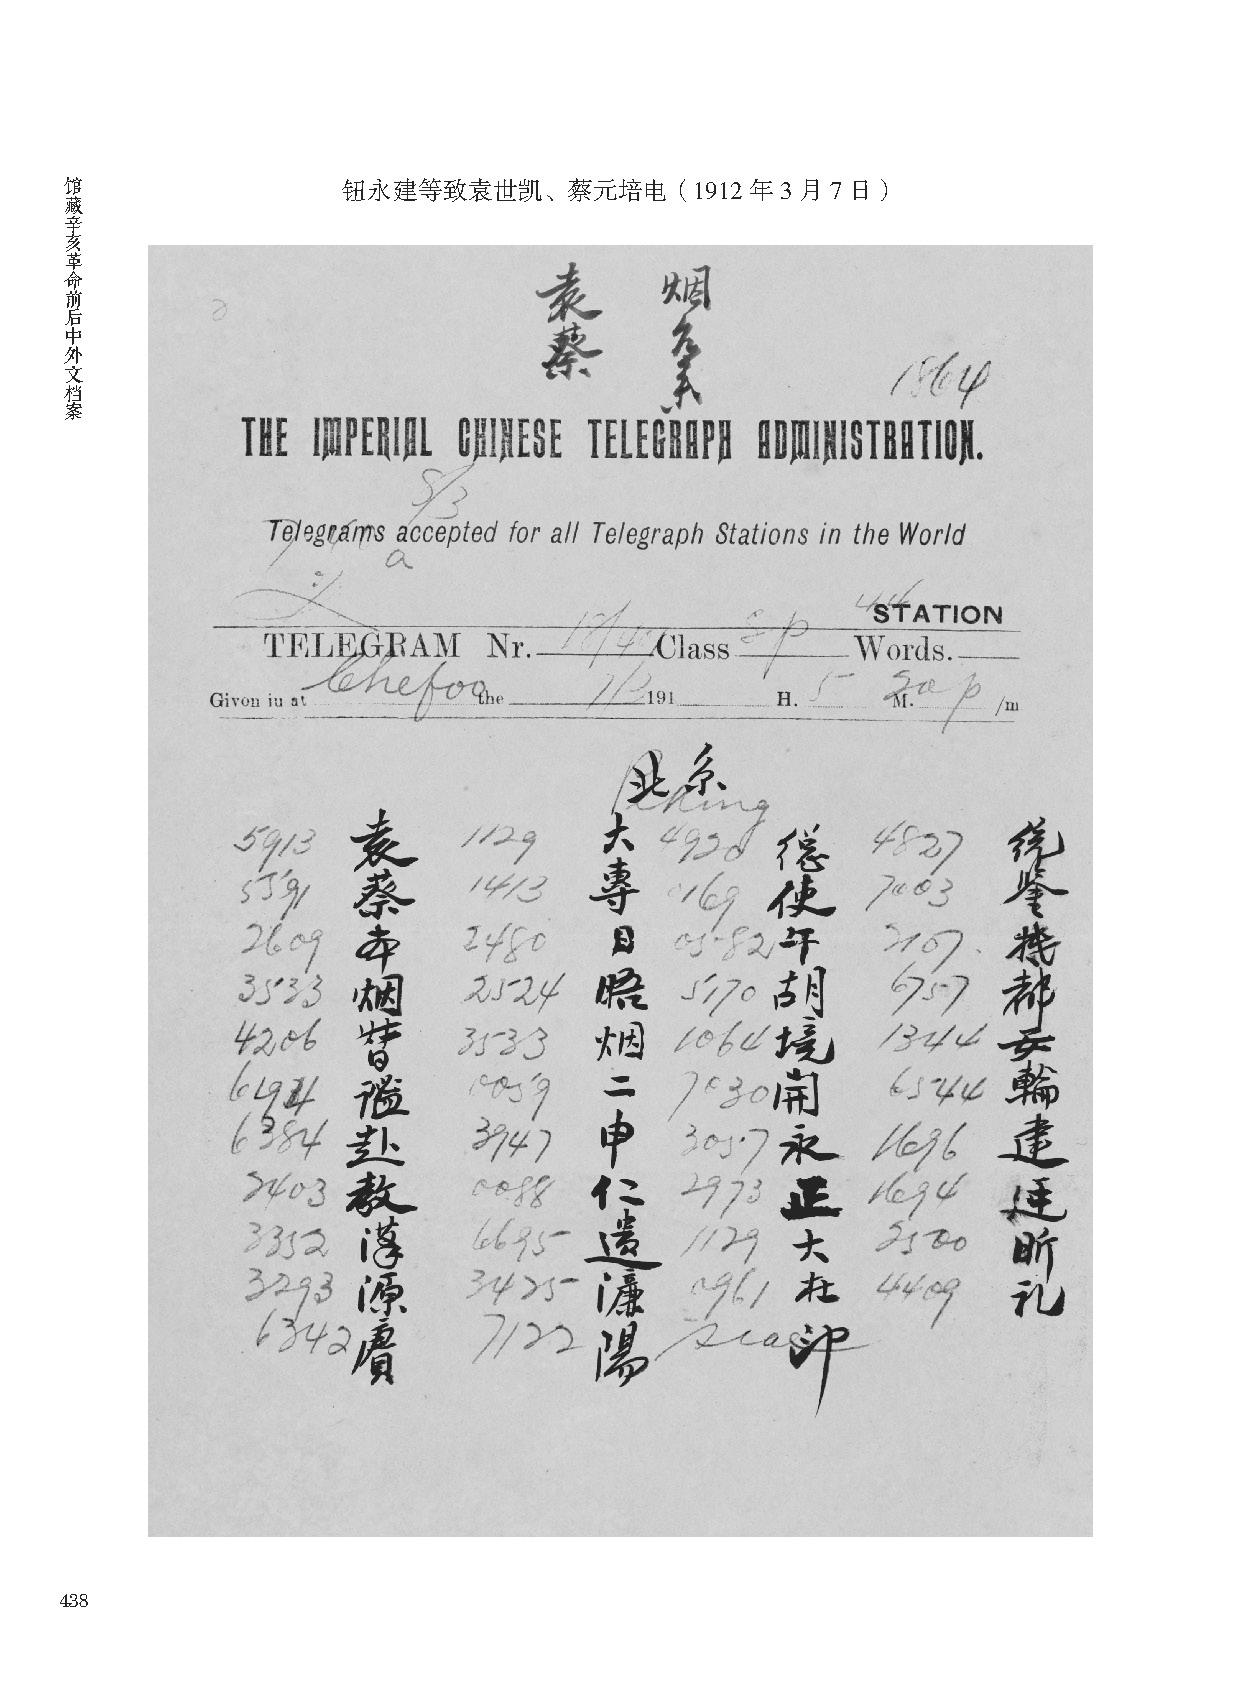 馆藏辛亥革命前后中外文档案
钮永建等致袁世凯、蔡元培电（1912年3月7日）
袁蔡
烟
1864
THE IMPERIAL CHINESE TELEGRAPH ADMINISTRATION.
8/3
Telegrams accepted for all Telegraph Stations in the World
a
44 STATION
TELEGRAM Nr. Class Sp Words.
Given in at Chefoo the 7/3 191 H. 5 M. 20 p /m
北京
Peking
5913 袁 1129 大 4920 總 4827 統
5591 蔡 1413 專 0169 使 7003 鑒
2609 本 2480 日 0582 午 2107 機
3533 烟 2524 晤 5170 胡 6757 都
4206 督 3533 烟 1064 境 1344 安
謐 0059 二 7030 開 6544 輪
6384 赴 3947 申 3057 永 1696 建
2403 教 0088 仁 2973 正 1694 廷
3352 漢 6695 遺 1129 大 2500 昕
3293 源 3425 濂 0961 在 4409 礼
6342 賡 7122 陽 印
438